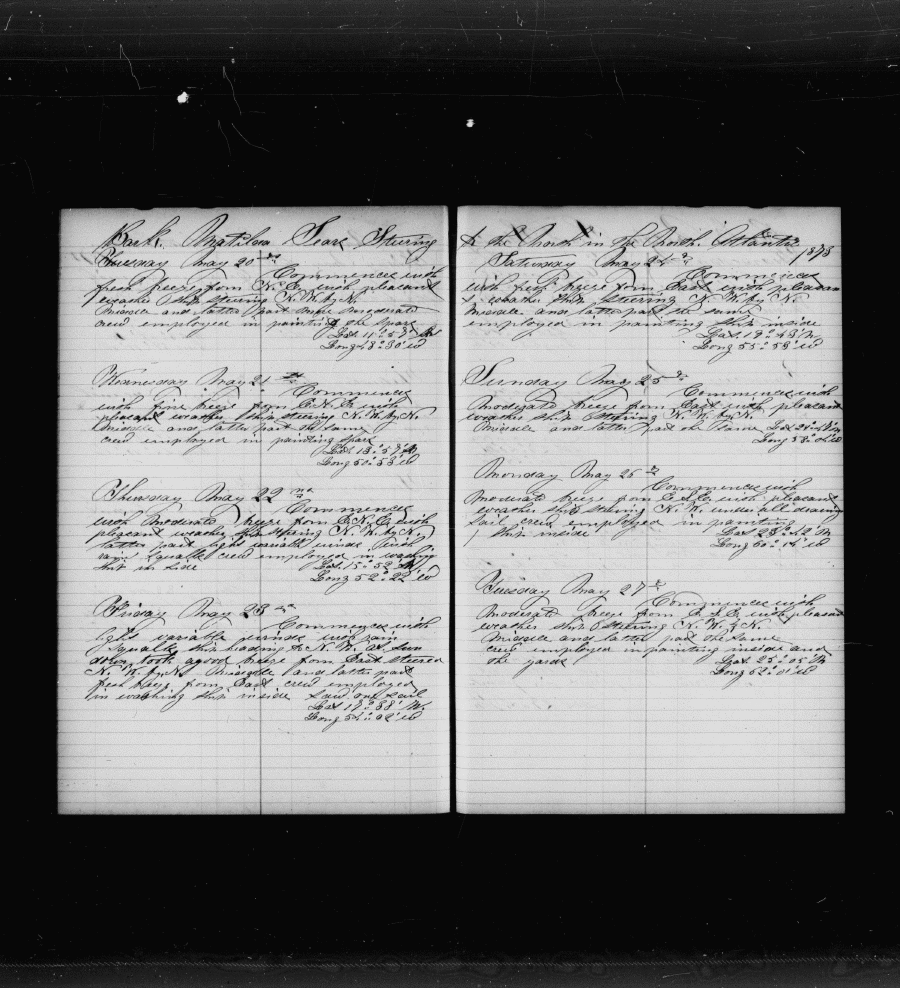 Bark. Matilda Sears Steering
Tuesday May 20th
Commences with
fresh breeze from N.E. with pleasant
weather ship steering N.W. by N.
Middle and latter part more moderate
crew employed in painting the spars
Lat. 11° 57' N
Long 48° 30' W
Wednesday May 21st
Commences
with fine breeze from E.N.E. with
pleasant weather ship steering N.W. by N.
Middle and latter part the same
crew employed in painting spars
Lat. 13° 57' N
Long 50° 53' W
Thursday May 22nd
Commences
with moderate breeze from E.N.E. with
pleasant weather ship steering N.W. by N.
latter part light variable winds with
rain squalls crew employed in washing
ship in side
Lat. 15° 52' N
Long 52° 22' W
Friday May 23rd
Commences with
light variable winds with rain
squalls ship heading to N.W. at sun
down took a good breeze from East steered
N.W. by N. Middle and latter part
fresh breeze from East crew employed
in washing ship inside saw one sail
Lat 17° 38' N.
Long 54° 02' W
to the North in the North. Atlantic
1873
Saturday May 24th
Commences
with fresh breeze from East with pleasant
weather ship steering N.W. by N.
Middle and latter part the same
employed in painting ship inside
Lat. 19° 43' N
Long 55° 53' W
Sunday May 25th
Commences with
moderate breeze from East with pleasant
weather ship steering N.W. by N.
Middle and latter part the same Lat
Long 58° W
Monday May 26th
Commences with
moderate breeze from E.S.E. with pleasant
weather ship steering N.W. under all drawing
sail crew employed in painting
ship inside
Lat 23° 42 N
Long 60° 14' W
Tuesday May 27th
Commences with
moderate breeze from E.S.E. with pleasant
weather ship steering N.W. by N.
Middle and latter part the same
crew employed in painting inside and
the yards
Lat. 25° 05' N
Long 62° 01' W